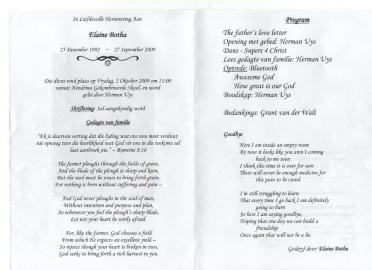 In Liefdevolle Herinnering Aan
Elaine Botha
23 Desember 1992 ~ 27 September 2009
Die diens vind plaas op Vrydag, 2 Oktober 2009 om 11:00
vanuit Hendrina Gekombineerde Skool, en word
gelei deur Herman Uys
Skriflesing: Sal aangekondig word
Gedagte van familie
"Ek is daarvan oortuig dat die lyding wat ons nou moet verduur,
nie opweeg teen die heerlikheid wat God vir ons in die toekoms sal
laat aanbreek nie." – Romeine 8:18
The farmer ploughs through the fields of green,
And the blade of the plough is sharp and keen,
But the seed must be sown to bring forth grain,
For nothing is born without suffering and pain –
And God never ploughs in the soul of man,
Without intention and purpose and plan,
So whenever you feel the plough's sharp blade,
Let not your heart be sorely afraid.
For, like the farmer, God chooses a field
From which He expects an excellent yield –
So rejoice though your heart is broken in two,
God seeks to bring forth a rich harvest in you.
Program
The father's love letter
Opening met gebed: Herman Uys
Dans - Supere 4 Christ
Lees gedagte van familie: Herman Uys
Optrede: Bluetooth
Awesome God
How great is our God
Boodskap: Herman Uys
Bedankings: Grant van der Walt
Goodbye
Here I am inside an empty room
By now it looks like you aren't coming
back to me soon
I think this time it is over for sure
There will never be enough medicine for
this pain to be cured.
I'm still struggling to learn
That every time I go back I am definitely
going to burn
So here I am saying goodbye,
Hoping that one day we can build a
friendship
Once again that will not be a lie.
Geskryf deur: Elaine Botha